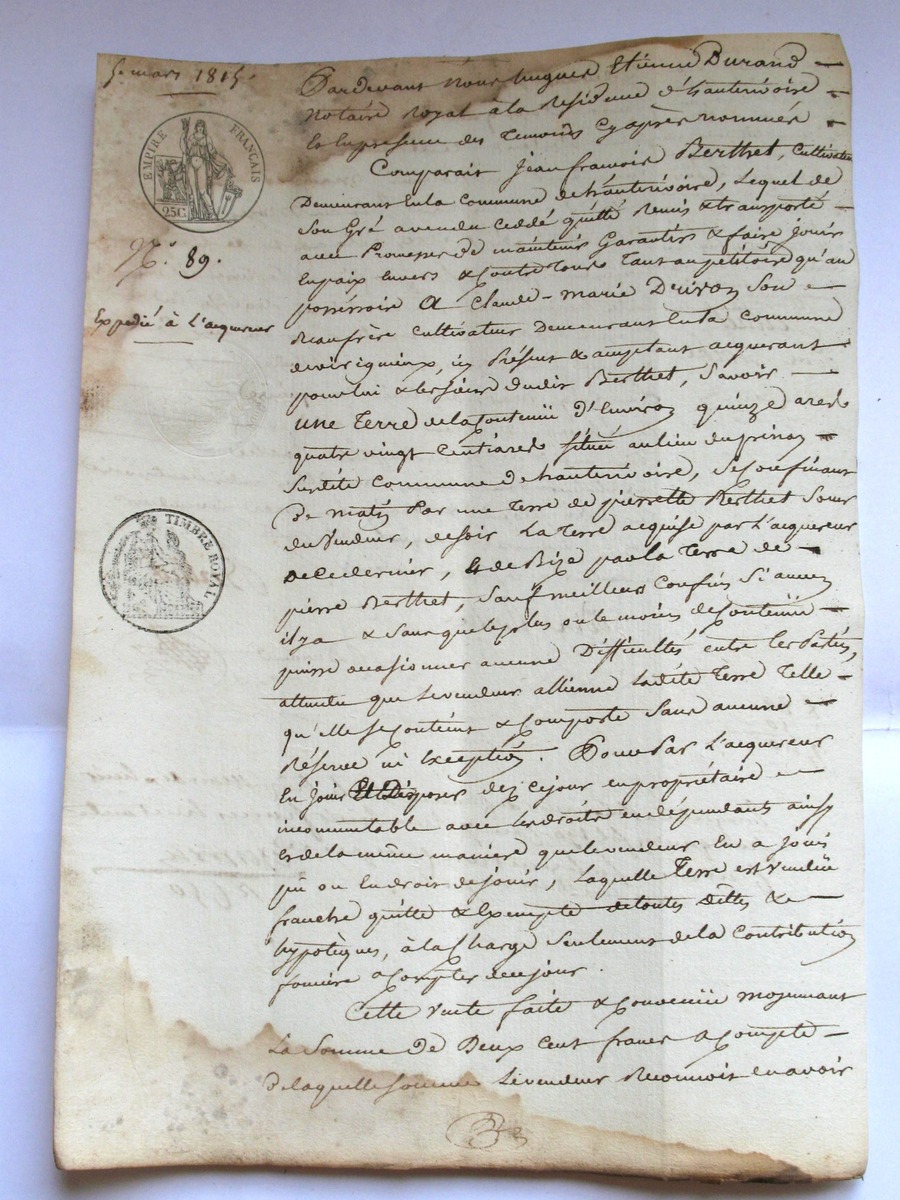 5. mars 1815.
EMPIRE FRANÇAIS
25C
N.° 89.
Expedié à L'acquereur
TIMBRE ROYAL
Pardevant nous hugues Etienne Durand
Notaire Royal à la Residence d'hauterivoire
Et En presence des Temoins Cy après nommés
Comparait jean françois Berthet, Cultivateur
Demeurant En la Commune de hauterivoire, Lequel de
Son Gré a vendu Ceddé quitté Remis & transporté
avec Promesse de maintenir Garantir & faire jouir
En paix Envers & Contre tous Tant au petitoire qu'au
possessoire A Claude-marie Son
Beaufrère cultivateur Demeurant En la Commune
de virigneux, ici Présent & acceptant acquerant
pour lui & les siens dudit Berthet, Savoir
une Terre de la Contenüe d'Environ quinze ares
quatre vingt Centiares Située au lieu du
Surdite Commune de hauterivoire, Se Confinant
de matin Par une Terre de pierrette Berthet Sœur
du Vendeur, de soir La Terre acquise par L'acquereur
de Ce dernier, & de Bize par la Terre de
pierre Berthet, Sauf meilleurs Confins Si aucun
il y a & Sans que le plus ou le moins de Contenüe
puisse occasionner aucune Difficultés entre les Parties,
attendu que Le vendeur allienne Ladite Terre Telle
qu'elle Se Contient & Comporte Sans aucune
Réserve ni Exception. Pour Par L'acquereur
En Jouir Et Disposer dez Ce jour en propriétaire
incommutable avec les droits en dépendants ainsy
& de la même maniere que le vendeur En a Joui
pu ou En droit de jouir, Laquelle Terre est Vendüe
franche quitte & Exempte de toutes Dettes &
hypotèques, à la Charge Seulement de la Contribution
foncière a Compter de ce jour.
Cette Vente faite & Convenüe moyennant
La Somme de Deux Cent francs a Compte
de laquelle somme Le vendeur Reconnoit en avoir